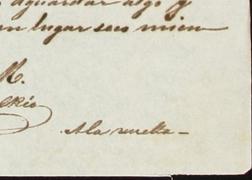 aguardar algo y
en lugar seco mien
M.
A la vuelta —